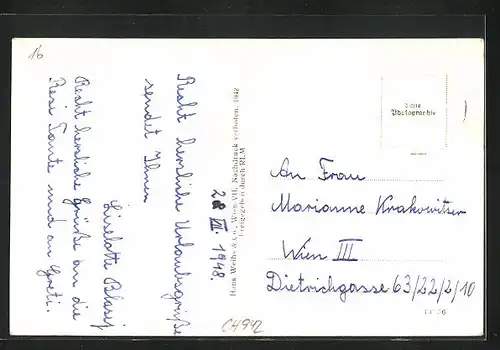 16
Recht herzliche Urlaubsgrüße
sendet Ihnen
Liselotte
Recht herzliche Grüße an die
Resi Tante und an Greti.
28 VII 1948
Nachdruck verboten. 1942
Freigegeben durch RLM
Echte
Photographie
An Frau
Marianne Krakowitzer
Wien III
Dietrichgasse 63/22/2/10
CH942